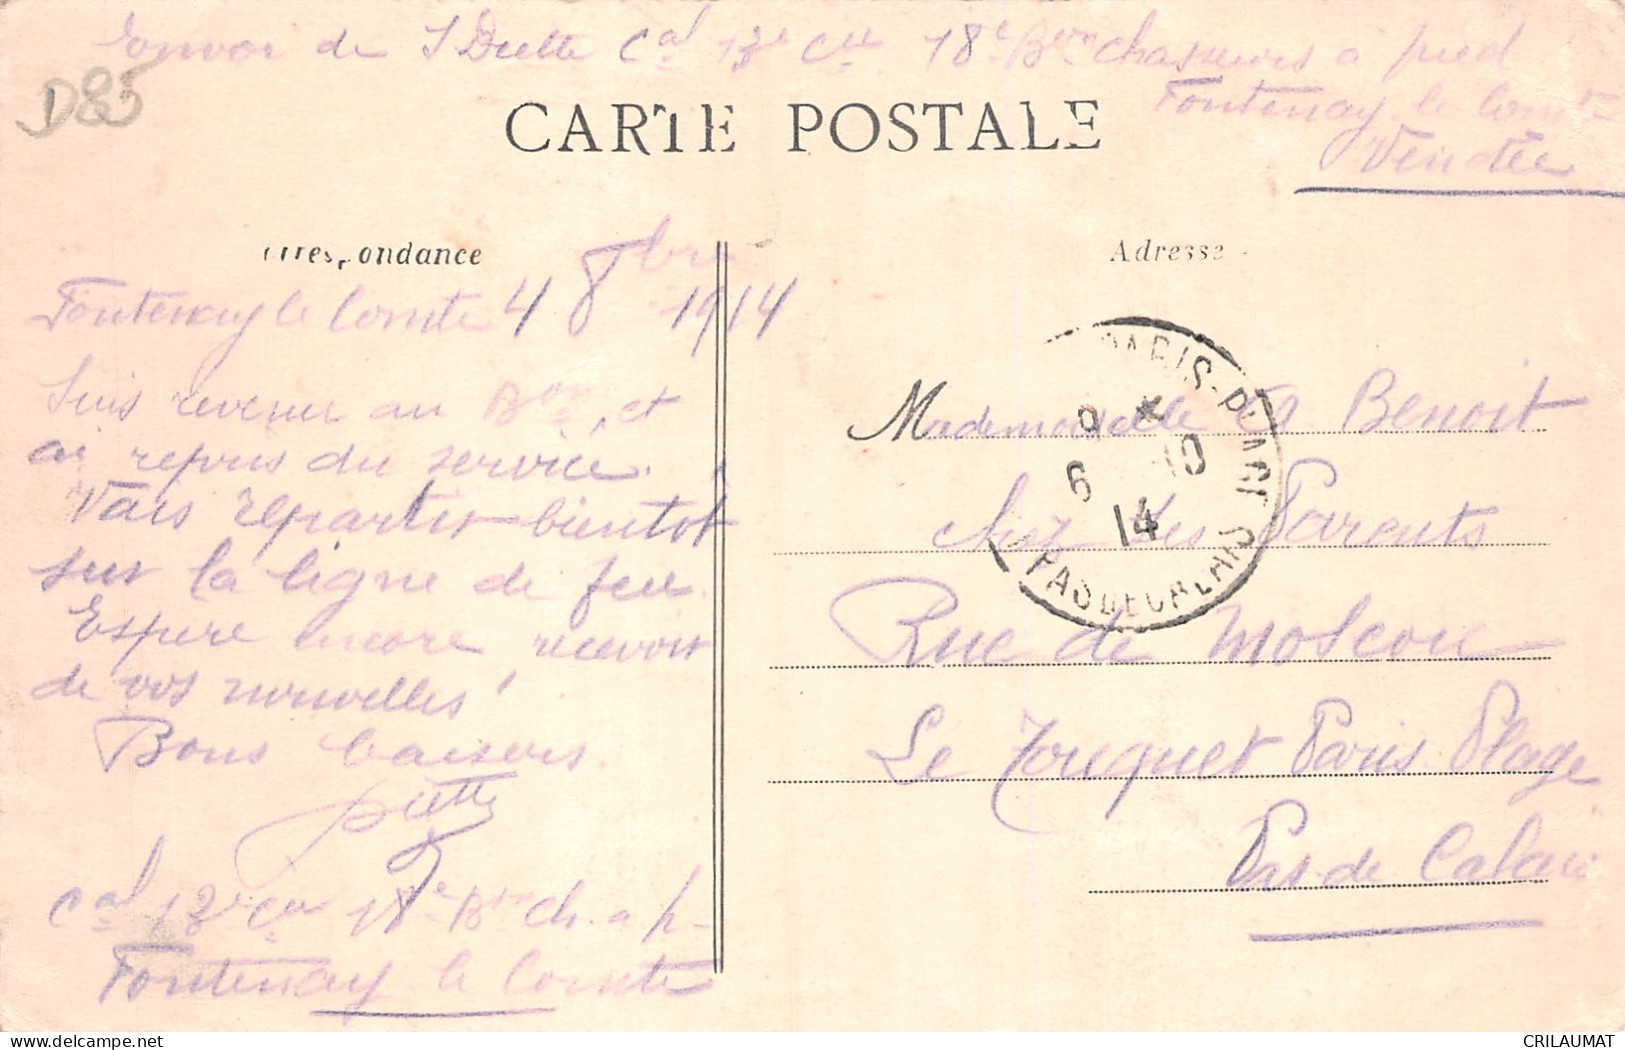 Envoi de J Duette Cal 13e Cie 18e Bon Chasseurs à pied
Fontenay le Comte
Vendée
D85
CARTE POSTALE
Correspondance
Adresse
Fontenay le Comte 4 8bre 1914
Suis revenu au Bon et
ai repris du service.
Vais repartir bientôt
sur la ligne de feu.
Espere encore recevoir
de vos nouvelles!
Bons baisers
Cal 13e Cie 18e Bon Ch. a p.
Fontenay le Comte
PARIS-PLAGE
6 10
14
PAS DE CALAIS
Mademoiselle Benoit
chez ses Parents
Rue de Moscou
Le Touquet Paris Plage
Pas-de Calais
delcampe.net
CRILAUMAT